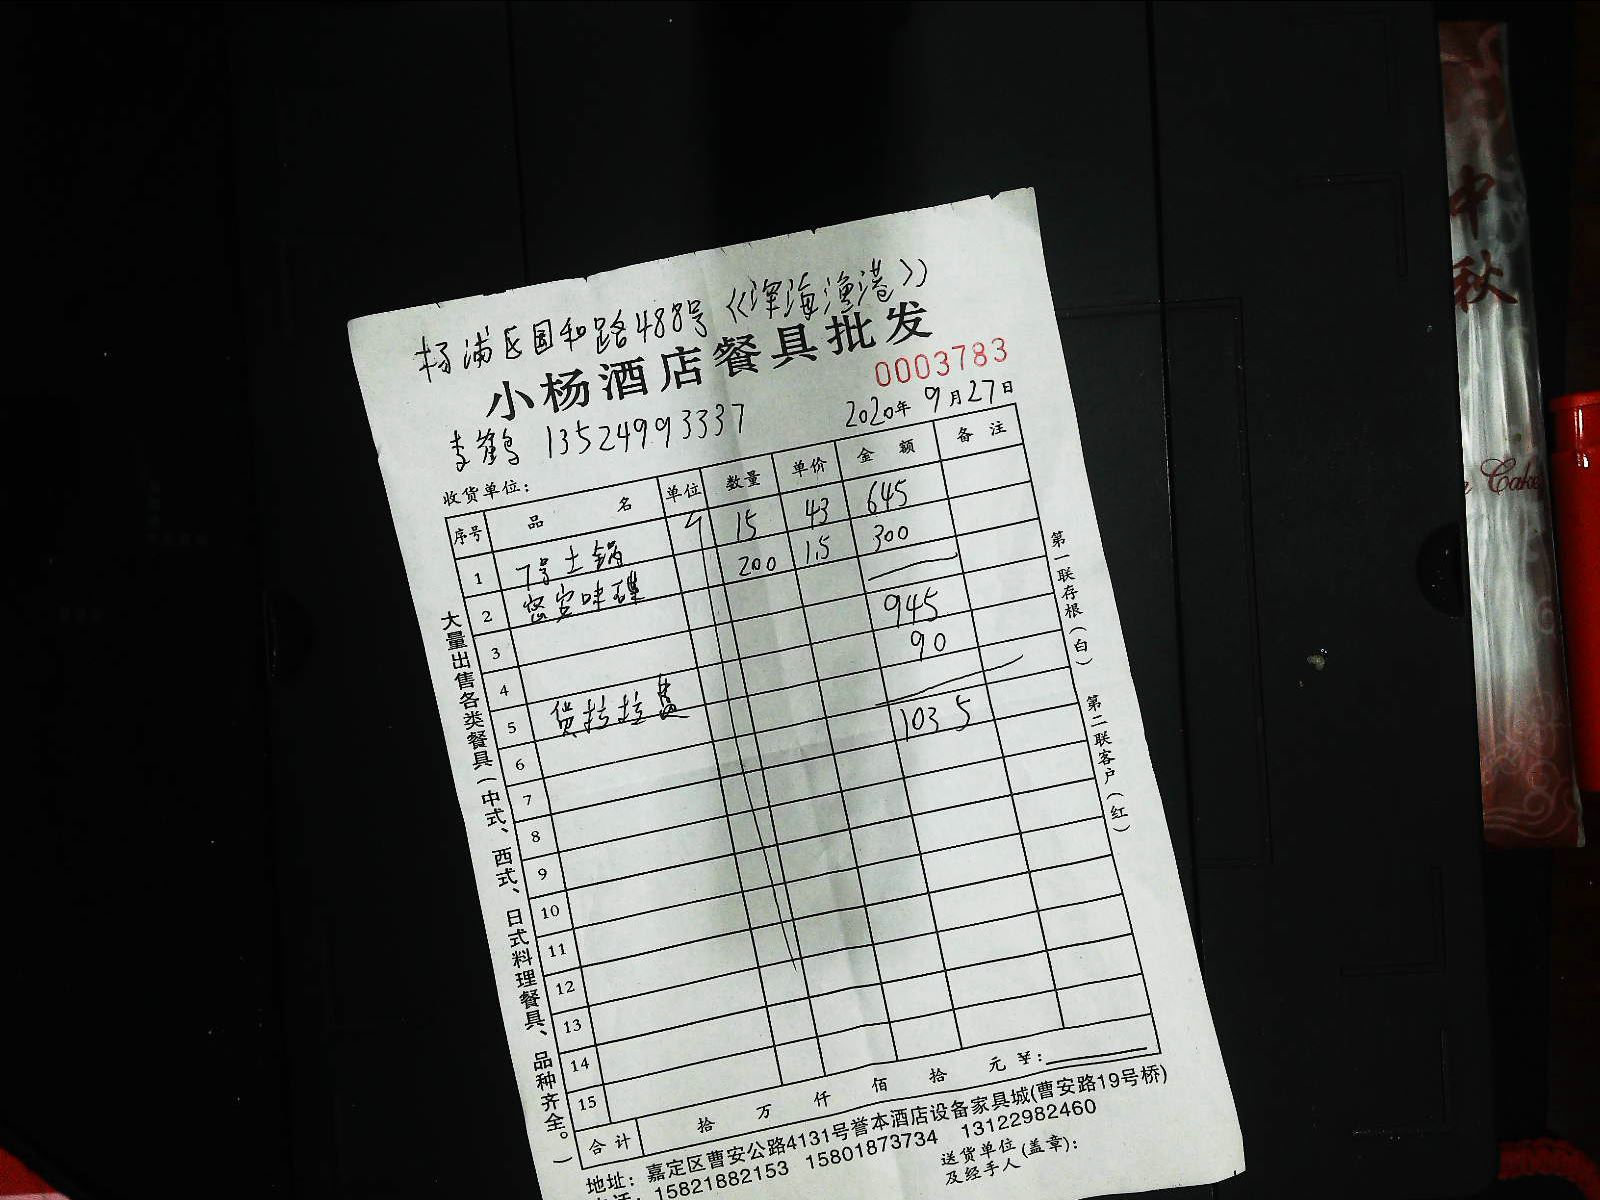 杨浦区国和路488号《深海渔港》
小杨酒店餐具批发
0003783
李鹤 13524993337
2020年9月27日
收货单位：
序号 品 名 单位 数量 单价 金 额 备 注
1 7号土锅 个 15 43 645
2 密宫味碟 200 1.5 300
3
4 945
5 货拉拉 90
6
7 1035
8
9
10
11
12
13
14
15
合计 拾 万 仟 佰 拾 元 ¥：
地址：嘉定区曹安公路4131号誉本酒店设备家具城(曹安路19号桥)
15821882153 15801873734 13122982460
送货单位
及经手人(盖章)：
大量出售各类餐具(中式、西式、日式料理餐具、品种齐全。)
第一联存根(白) 第二联客户(红)
中秋
Cake